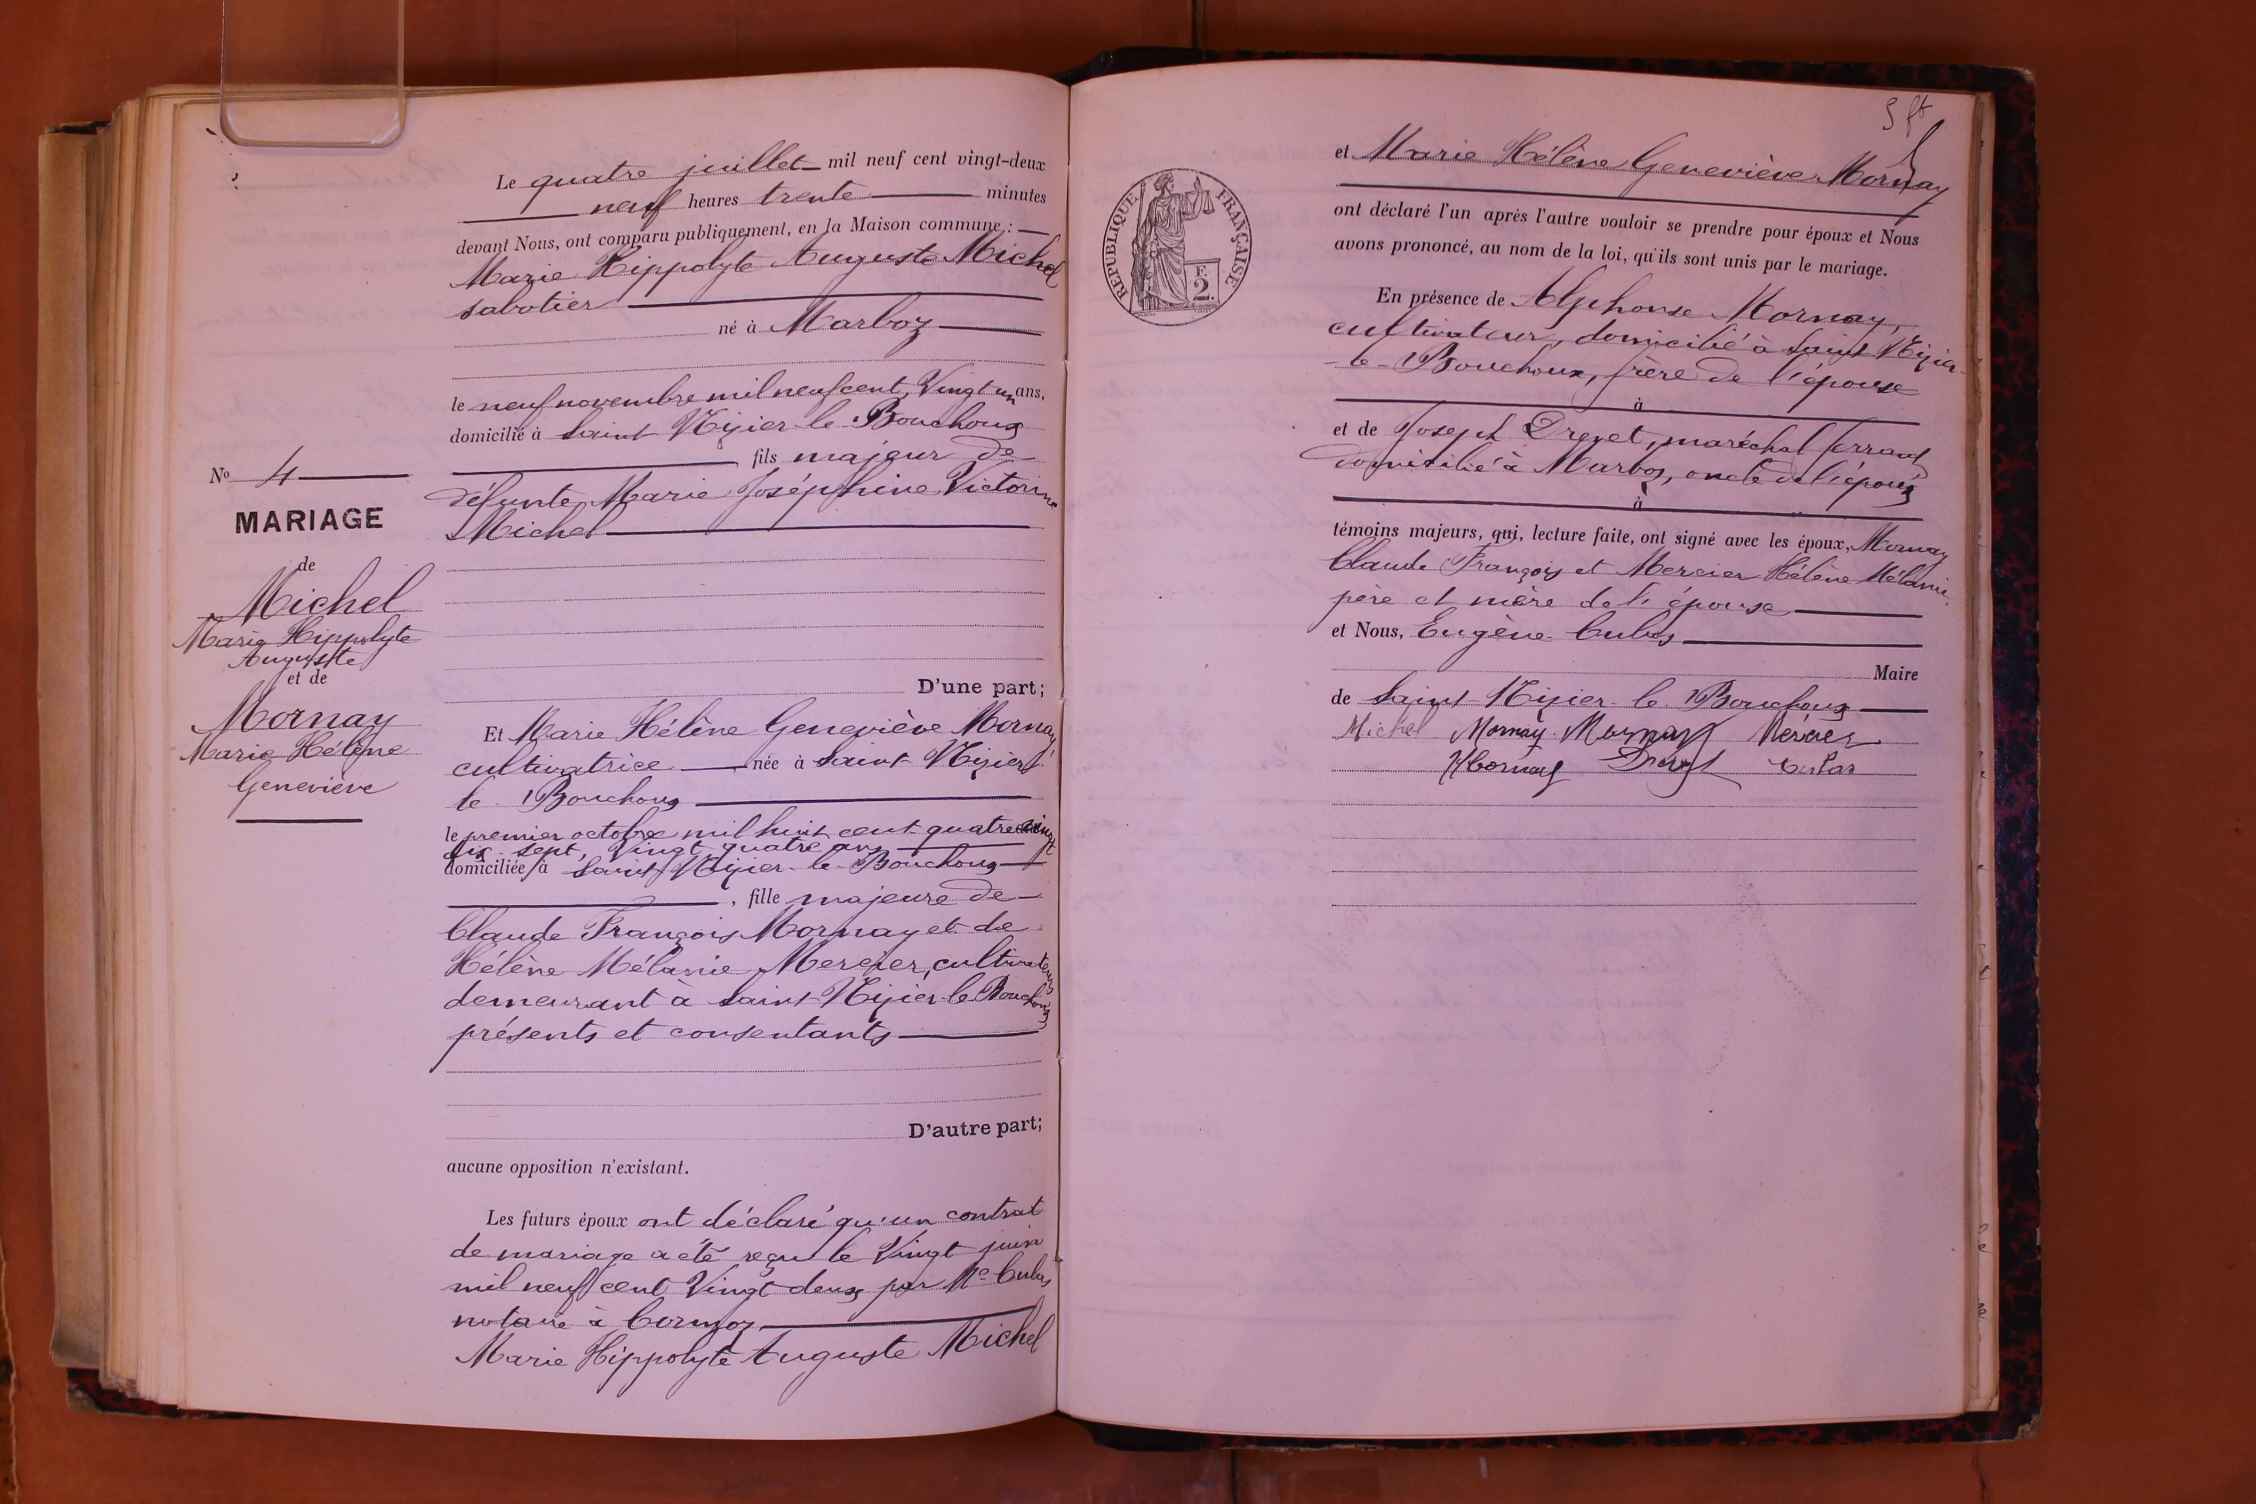 Le quatre juillet mil neuf cent vingt-deux
neuf heures trente minutes
devant Nous, ont comparu publiquement, en la Maison commune :
Marie Hippolyte Auguste Michel
sabotier
né à Marboz
le neuf novembre mil neuf cent, Vingt un ans.
domicilié à Saint Nizier le Bouchoux
fils majeur de
défunte Marie Joséphine Victorine
Michel
D'une part;
Et Marie Hélène Geneviève Mornay,
cultivatrice née à Saint Nizier
le Bouchoux
le premier octobre mil huit cent quatre vingt
dix sept, Vingt quatre ans
domiciliée à Saint Nizier le Bouchoux
, fille majeure de
Claude François Mornay et de
Hélène Mélanie Mercier, cultivateurs
demeurant à Saint Nizier le Bouchoux
présents et consentants
D'autre part;
aucune opposition n'existant.
Les futurs époux ont déclaré qu'un contrat
de mariage a été reçu le Vingt juin
mil neuf cent Vingt deux par Me Cubas
notaire à Cormoz
Marie Hippolyte Auguste Michel
No 4
MARIAGE
de
Michel
Marie Hippolyte
Auguste
et de
Mornay
Marie Hélène
Geneviève
RÉPUBLIQUE FRANÇAISE
2 F.
et Marie Hélène Geneviève Mornay
ont déclaré l'un après l'autre vouloir se prendre pour époux et Nous
avons prononcé, au nom de la loi, qu'ils sont unis par le mariage.
En présence de Alphonse Mornay,
cultivateur, domicilié à Saint Nizier
le Bouchoux, frère de l'épouse
à
et de Joseph Drevet, maréchal ferrant
domicilié à Marboz, oncle de l'époux
à
témoins majeurs, qui, lecture faite, ont signé avec les époux, Mornay
Claude François et Mercier Hélène Mélanie
père et mère de l'épouse
et Nous, Eugène Cubas
Maire
de Saint Nizier le Bouchoux
Michel Mornay Mornay Mercier
Mornay Drevet Cubas